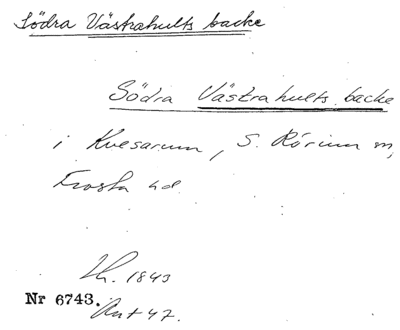 Södra Västrahults backe
Södra Västrahults backe
i Kvesarum, S. Rörum sn,
Frosta hd.
Lh. 1843
Nr 6743.
Ant 47.